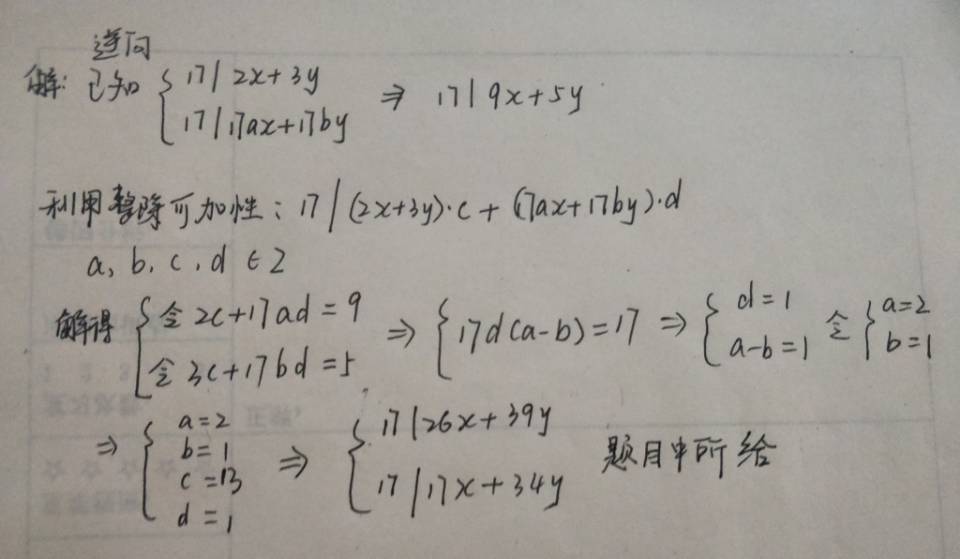 逆向
解: 已知 { 17 | 2x+3y
17 | 17ax+17by ⇒ 17 | 9x+5y
利用整除可加性: 17 | (2x+3y)·c + (17ax+17by)·d
a, b, c, d ∈ Z
解得 { 令 2c+17ad=9
令 3c+17bd=5 ⇒ { 17d(a-b)=17 ⇒ { d=1
a-b=1 令 { a=2
b=1
⇒ { a=2
b=1
c=13
d=1 ⇒ { 17 | 26x+39y
17 | 17x+34y 题目中所给